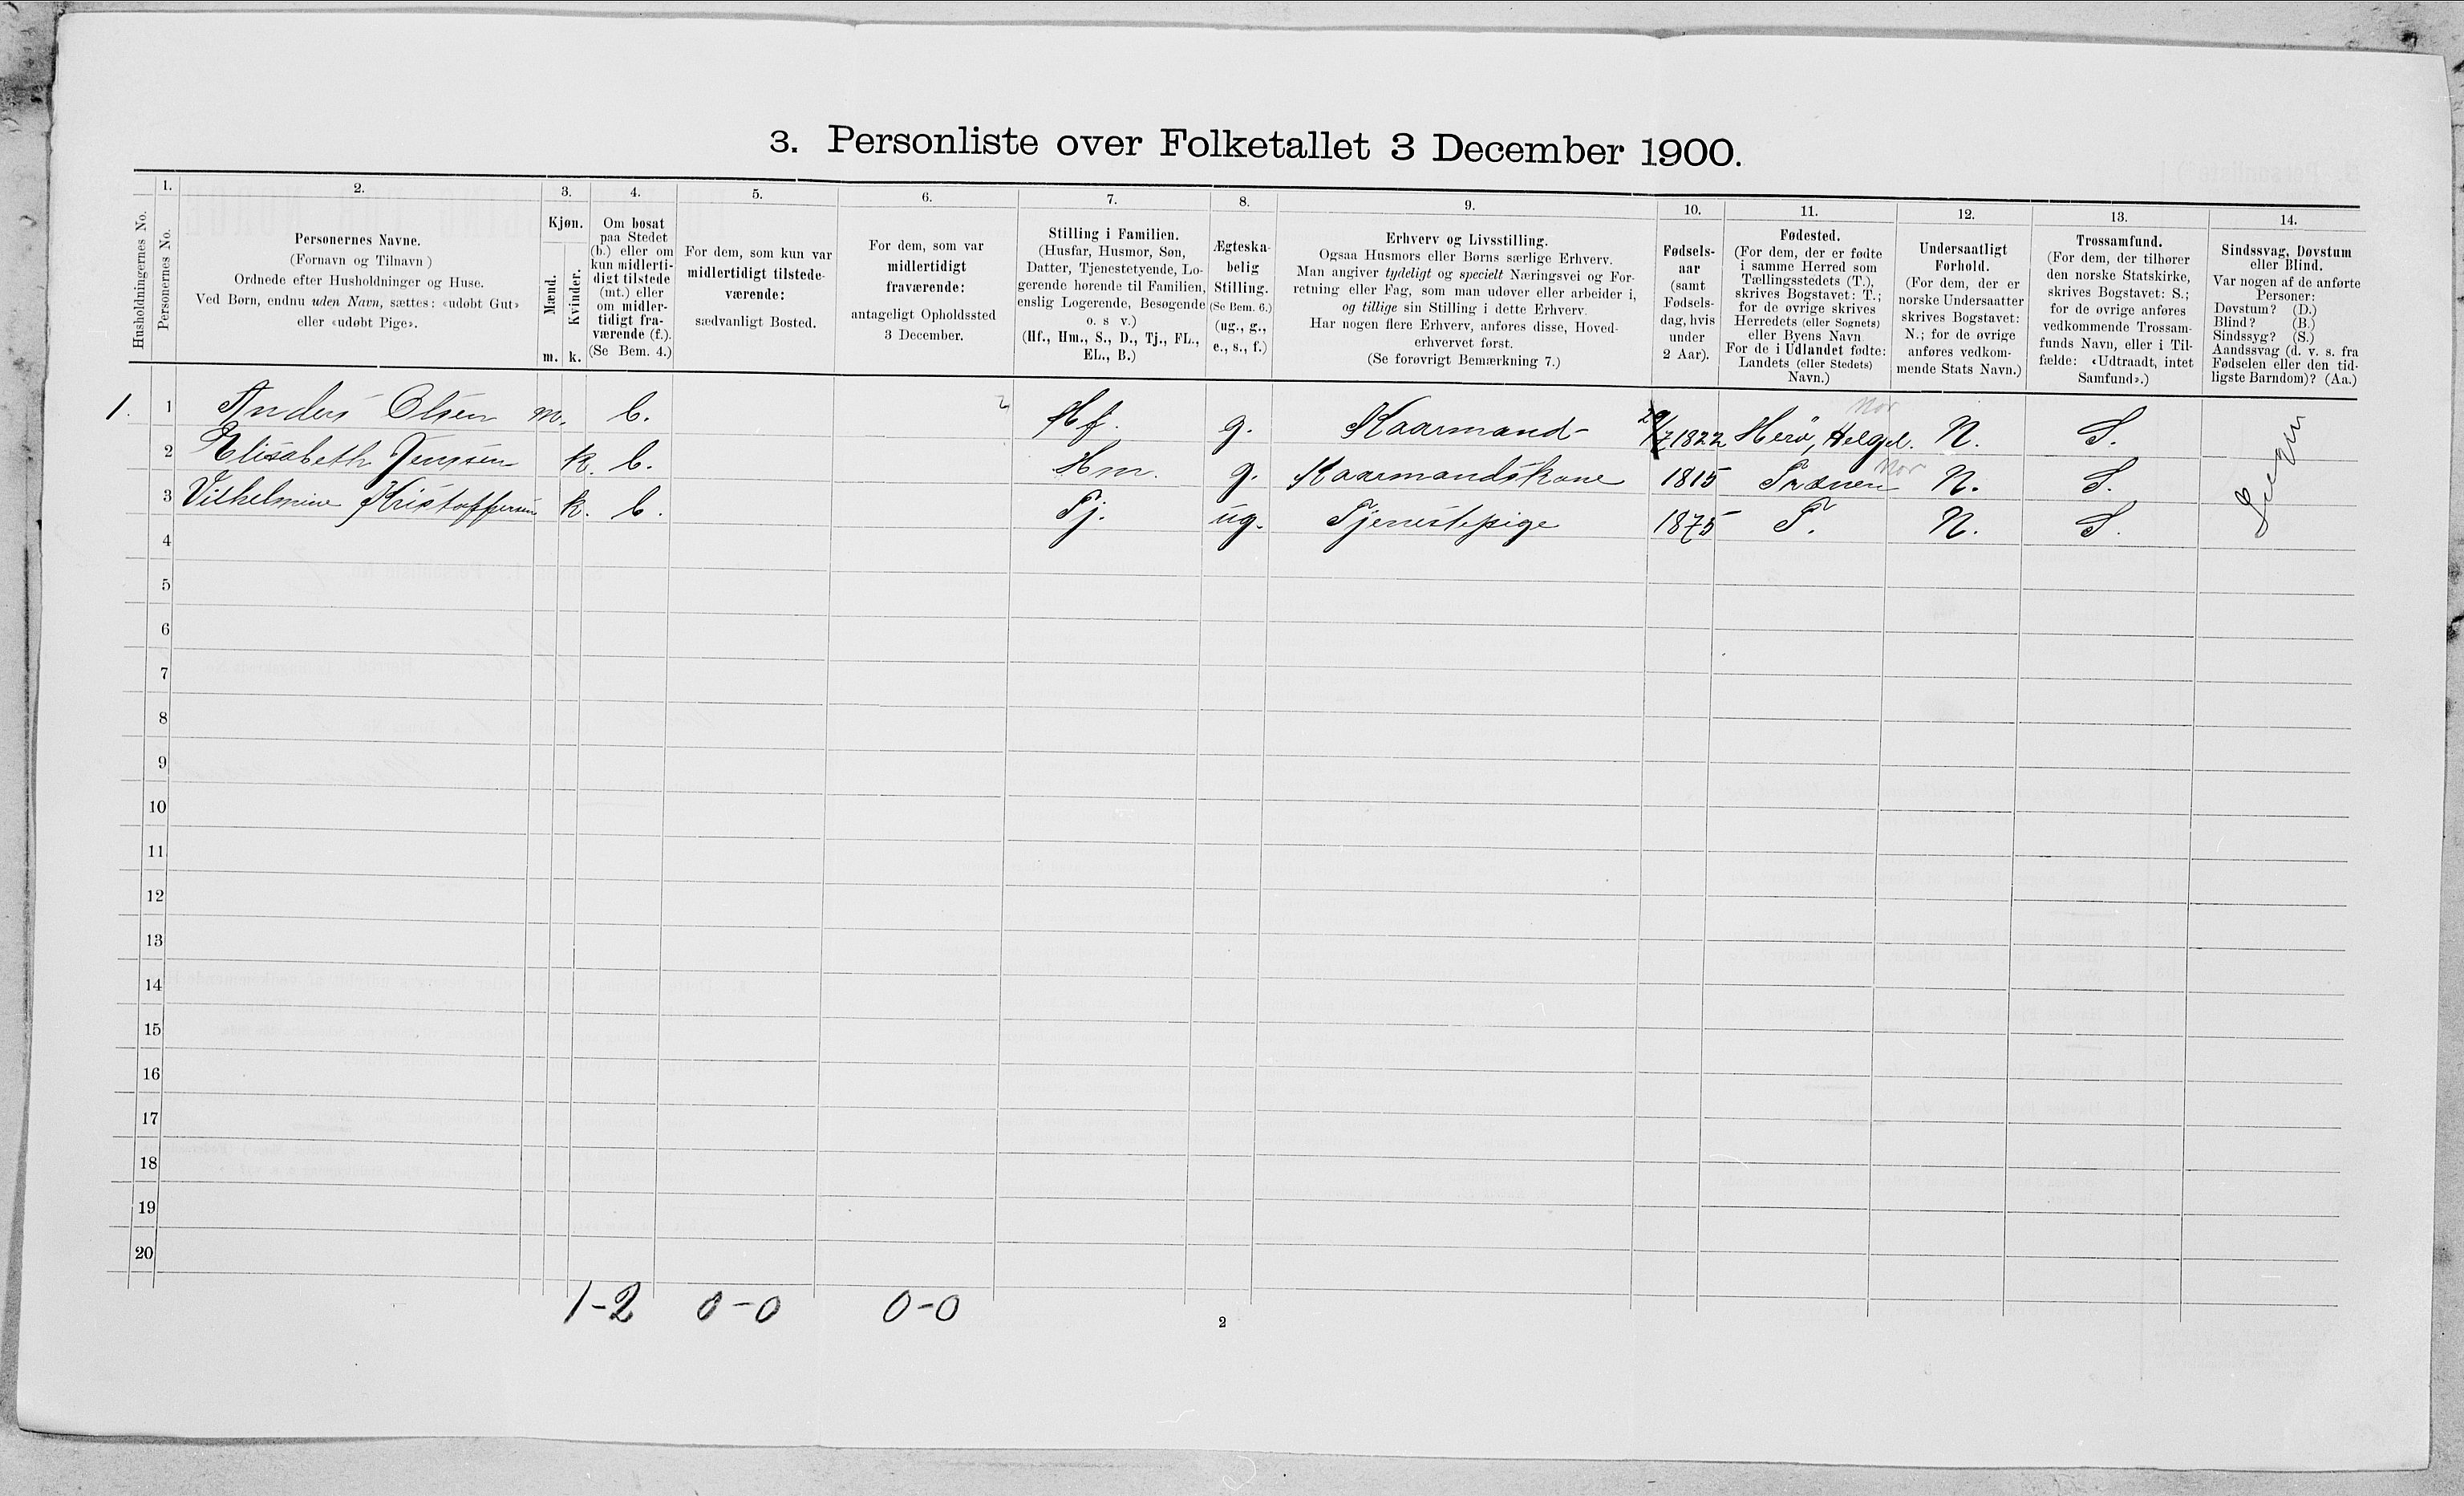 3. Personliste over Folketallet 3 December 1900.
1. 2. 3. 4. 5. 6. 7. 8. 9. 10. 11. 12. 13. 14.
Husholdningernes No.
Personernes No.
Personernes Navne.
(Fornavn og Tilnavn)
Ordnede efter Husholdninger og Huse.
Ved Børn, endnu uden Navn, sættes: «udøbt Gut»
eller «udøbt Pige».
Kjøn.
Mænd.
Kvinder.
m. k.
Om bosat
paa Stedet
(b.) eller om
kun midlerti-
digt tilstede
(mt.) eller
om midler-
tidigt fra-
værende (f.).
(Se Bem. 4.)
For dem, som kun var
midlertidigt tilstede-
værende:
sædvanligt Bosted.
For dem, som var
midlertidigt
fraværende:
antageligt Opholdssted
3 December.
Stilling i Familien.
(Husfar, Husmor, Søn,
Datter, Tjenestetyende, Lo-
gerende hørende til Familien,
enslig Logerende, Besøgende
o. s v.)
(Hf., Hm., S., D., Tj., FL.,
EL., B.)
Ægteska-
belig
Stilling.
(Se Bem. 6.)
(ug., g.,
e., s., f.)
Erhverv og Livsstilling.
Ogsaa Husmors eller Børns særlige Erhverv.
Man angiver tydeligt og specielt Næringsvei og For-
retning eller Fag, som man udøver eller arbeider i,
og tillige sin Stilling i dette Erhverv.
Har nogen flere Erhverv, anføres disse, Hoved-
erhvervet først.
(Se forøvrigt Bemærkning 7.)
Fødsels-
aar
(samt
Fødsels-
dag, hvis
under
2 Aar).
Fødested.
(For dem, der er fødte
i samme Herred som
Tællingsstedets (T.),
skrives Bogstavet: T.;
for de øvrige skrives
Herredets (eller Sognets)
eller Byens Navn
For de i Udlandet fødte:
Landets (eller Stedets)
Navn.)
Undersaatligt
Forhold.
(For dem, der er
norske Undersaatter
skrives Bogstavet:
N.; for de øvrige
anføres vedkom-
mende Stats Navn.)
Trossamfund.
(For dem, der tilhører
den norske Statskirke,
skrives Bogstavet: S.;
for de øvrige anføres
vedkommende Trossam-
funds Navn, eller i Til-
fælde: «Udtraadt, intet
Samfund».)
Sindssvag, Døvstum
eller Blind.
Var nogen af de anførte
Personer:
Døvstum? (D.)
Blind? (B.)
Sindssyg? (S.)
Aandssvag (d. v. s. fra
Fødselen eller den tid-
ligste Barndom)? (Aa.)
1. 1 Anders Olsen m. b. 2 Hf. g. Kaarmand 29/7 1822 Herø, Helgel. Nor N. S.
2 Elisabeth Jenssen k. b. Hm. g. Kaarmandskone 1815 Trænen Nor N. S.
3 Vilhelmine Kristoffersen k. b. Tj. ug. Tjenestepige 1875 T. N. S.
4
5
6
7
8
9
10
11
12
13
14
15
16
17
18
19
20
1-2 0-0 0-0
2